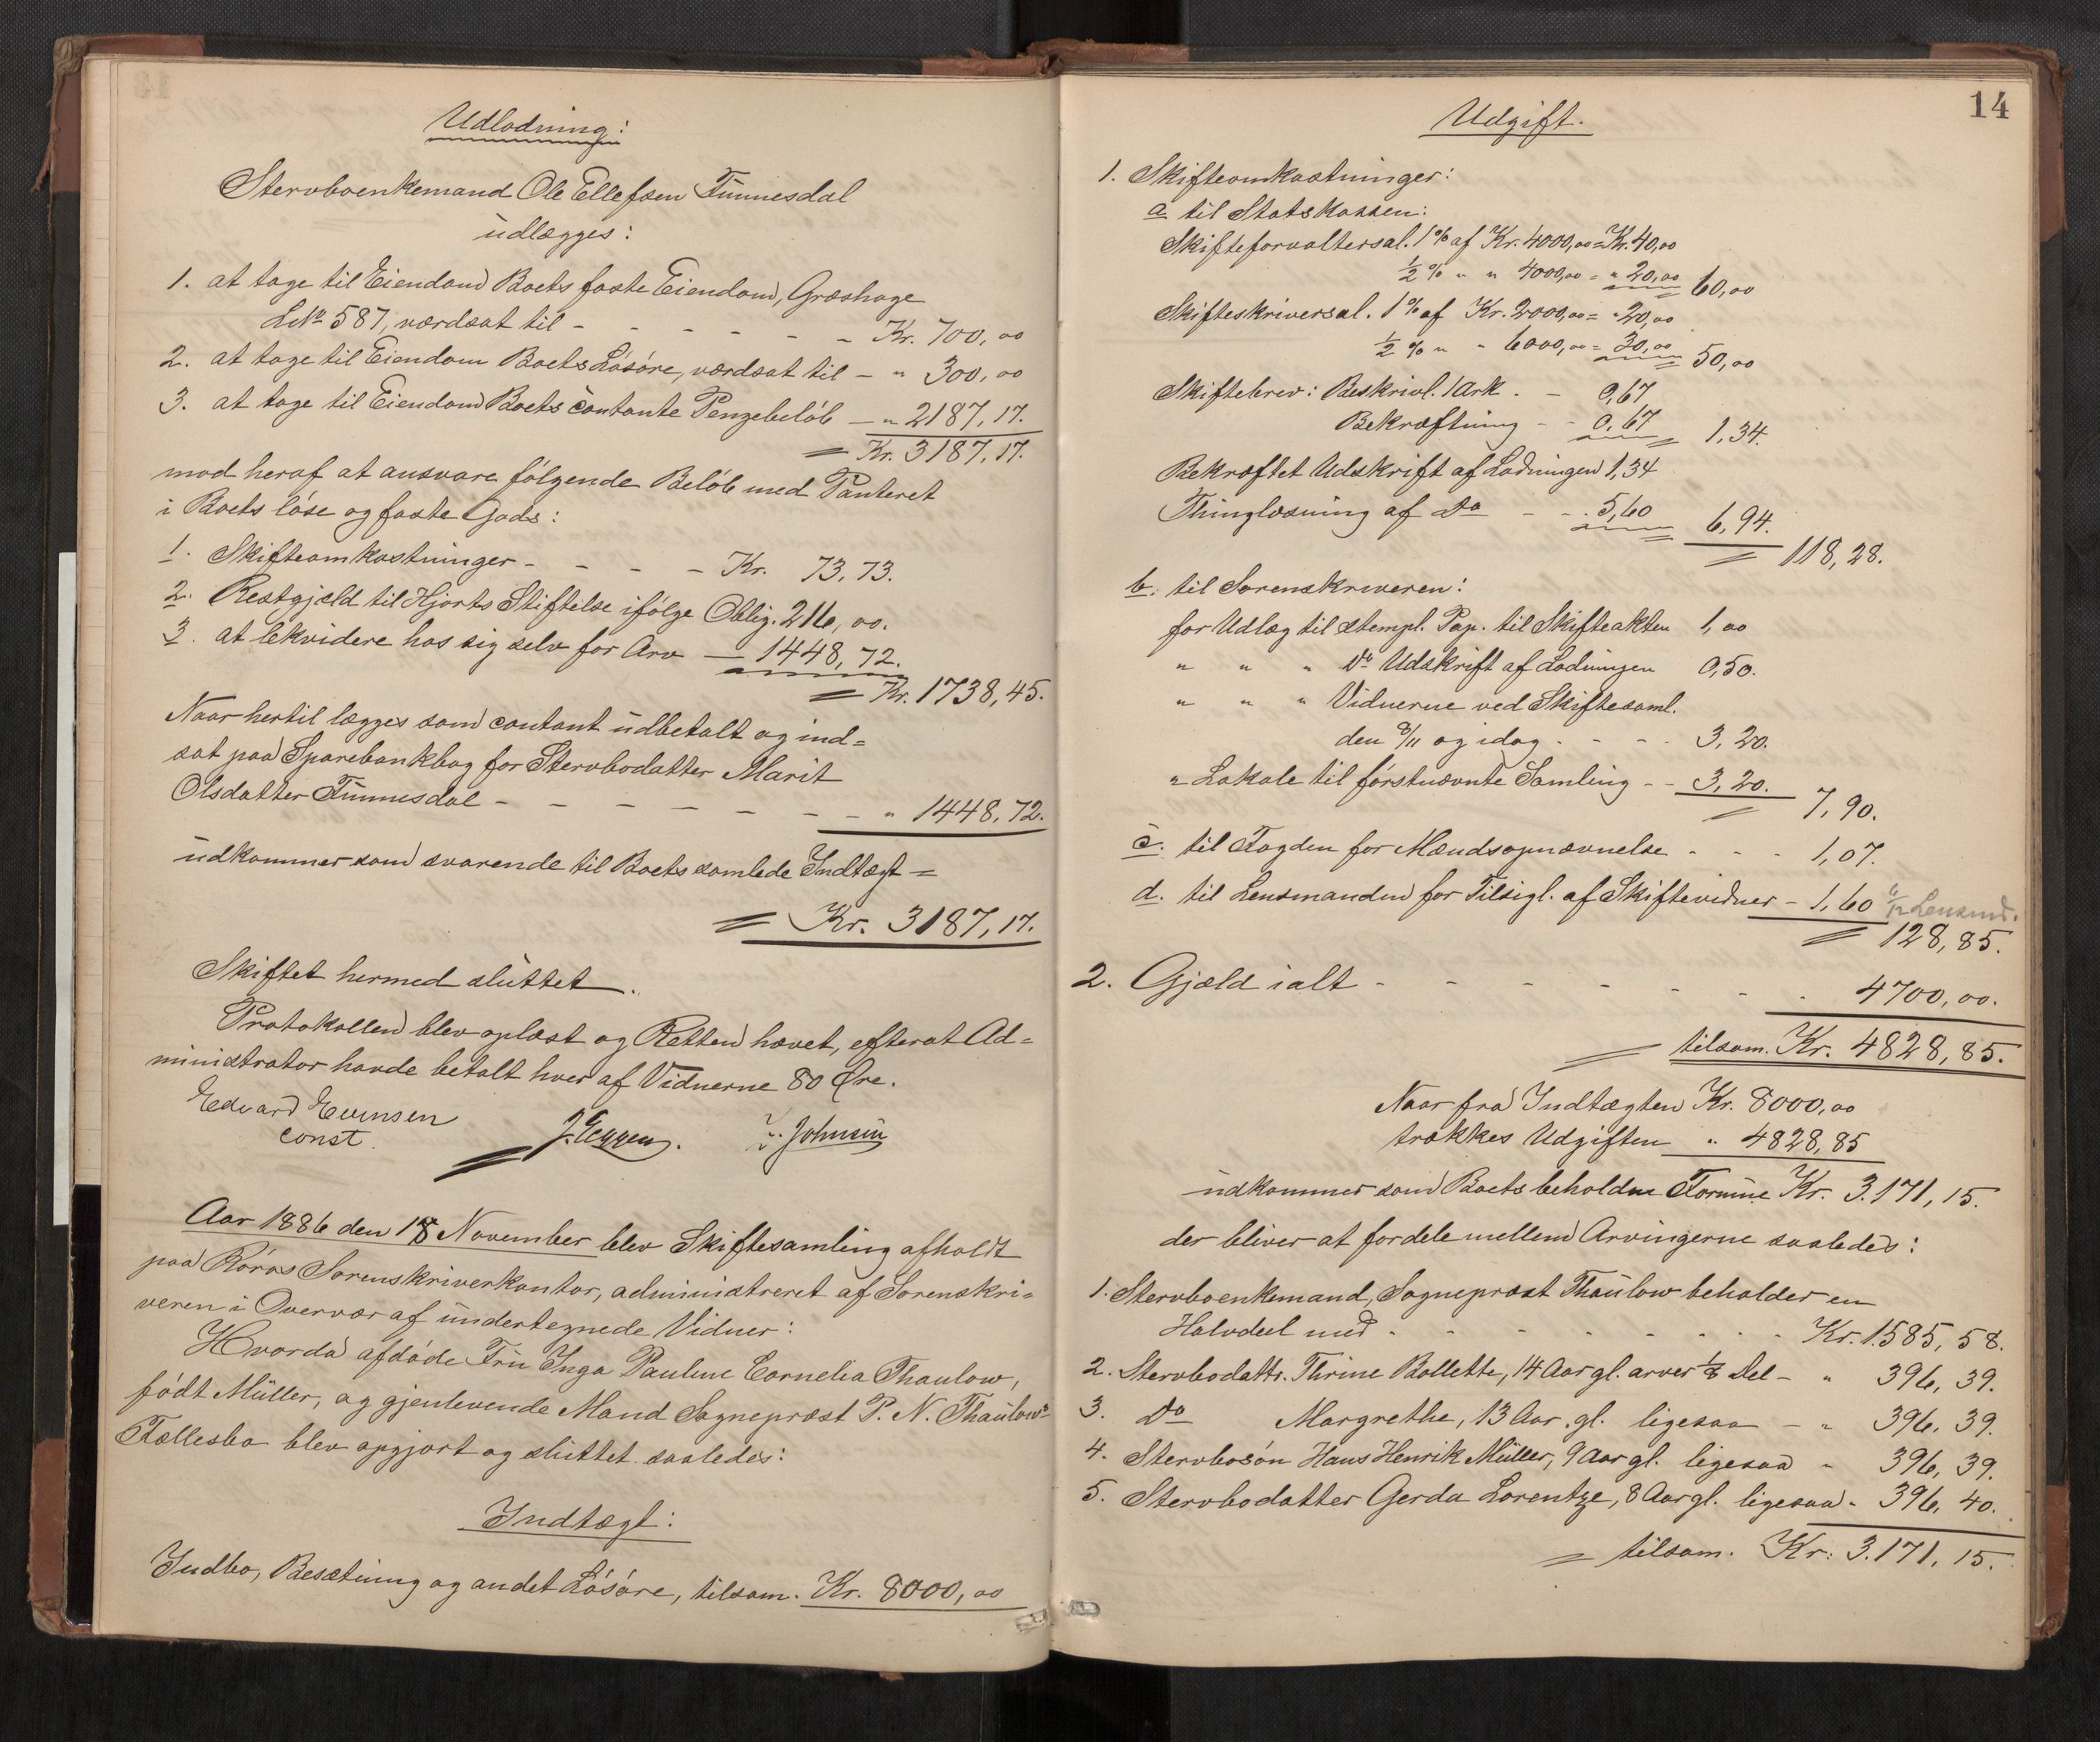 Udlodning:
Stervboenkemand Ole Ellefsen Tunnesdal
udlægges:
1. at tage til Eiendom Boets faste Eiendom, Græshage
LNo 587, værdsat til - - - - - - Kr. 700,00
2. at tage til Eiendom Boets Løsøre, værdsat til - " 300,00
3. at tage til Eiendom Boets contante Pengebeløb - " 2187,17.
= Kr. 3187,17.
mod heraf at ansvare følgende Beløb med Panteret
i Boets løse og faste Gods:
1. Skifteomkostninger - - - - Kr. 73,73.
2. Restgjæld til Hjorts Stiftelse ifølge Oblig. 216,00.
3. at lekvidere hos sig selv for Arv - 1448,72.
= Kr. 1738,45.
Naar hertil lægges som contant udbetalt og ind=
sat paa Sparebankbog for Stervbodatter Marit
Olsdatter Tunnesdal - - - - - - " 1448,72.
udkommer som svarende til Boets samlede Indtægt =
= Kr. 3187,17.
Skiftet hermed sluttet.
Protokollen blev oplæst og Retten hævet, efterat Ad=
ministrator havde betalt hver af Vidnerne 80 Øre.
Edvard Evensen
const.
J. Eggen. Johnsen
Aar 1886 den 18 November blev Skiftesamling afholdt
paa Røros Sorenskriverkontor, administreret af Sorenskri=
veren i Overvær af undertegnede Vidner:
Hvorda afdøde Fru Inga Pauline Cornelia Thaulow,
født Müller, og gjenlevende Mand Sognepræst P. N. Thaulow's
Fællesbo blev opgjort og sluttet saaledes:
Indtægt:
Indbo, Besætning og andet Løsøre, tilsam. Kr. 8000,00
14
Udgift.
1. Skifteomkostninger:
a til Statskassen:
Skifteforvaltersal. 1% af Kr. 4000,00 = Kr. 40,00
1/2 % " " 4000,00 = " 20,00 60,00
Skifteskriversal. 1% af Kr. 2000,00 = " 20,00
1/2 % " " 6000,00 = 30,00 50,00
Skiftebrev: Beskrivl. 1 Ark. - 0,67
Bekræftning - - 0,67 1,34.
Bekræftet Udskrift af Lodningen 1,34
Thinglæsning af Do - - 5,60 6,94.
= 118,28.
b. til Sorenskriveren:
for Udlæg til stempl. Pap. til Skifteakten 1,00
" " " Do Udskrift af Lodningen 0,50.
" " " Vidnerne ved Skiftesaml.
den 8/11 og idag - - - 3,20.
" Lokale til førstnævnte Samling - - 3,20.
= 7,90.
c. til Fogden for Mændsopnævnelse - - - 1,07.
d. til Lensmanden for Tilsigl. af Skiftevidner - 1,60 Lensmd.
= 128,85.
2. Gjæld ialt - - - - - - - 4700,00.
= tilsam. Kr. 4828,85.
Naar fra Indtægten Kr. 8000,00
trækkes Udgiften " 4828,85
udkommer som Boets beholdne Formue Kr. 3.171,15.
der bliver at fordele mellem Arvingerne saaledes:
1. Stervboenkemand, Sognepræst Thaulow beholder en
Halvdeel med - - - - - - - - Kr. 1585,58.
2. Stervbodattr. Thrine Bollette, 14 Aar gl. arver 1/8 Del - " 396,39.
3. Do Margrethe, 13 Aar gl. ligesaa - " 396,39.
4. Stervbosøn Hans Henrik Müller, 9 Aar gl. ligesaa " 396,39.
5. Stervbodatter Gerda Lorentze, 8 Aar gl. ligesaa " 396,40.
= tilsam. Kr. 3.171,15.